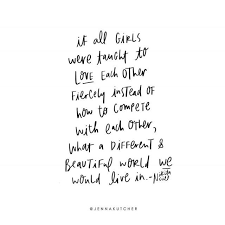 if all GIRLS
were taught to
LOVE Each Other
Fiercely instead of
how to compete
with each other,
what a DIFFERENT &
Beautiful world we
would live in. -Nikita
Gill
@JENNAKUTCHER